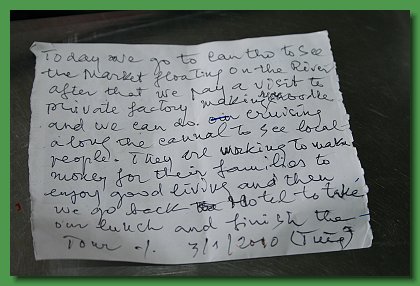 Today we go to can tho to see
the Market floating on the River
after that we pay a visit to
private factory making noodle
and we can do cruising
along the cannal to see local
people. They are working to make
money for their families to
enjoy good living and then
we go back Hotel to take
our lunch and finish the
Tour ./. 3/1/2010 (Tung)